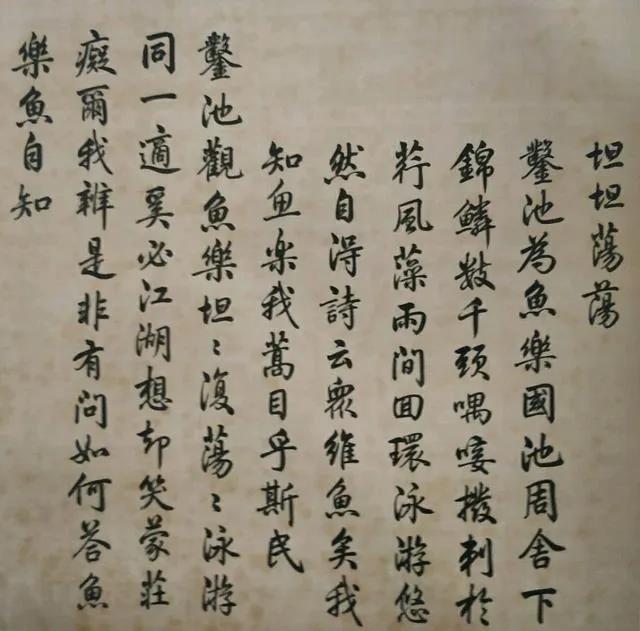 坦坦蕩蕩
鑿池為魚樂國池周舍下
錦鱗数千頭喁唼撥刺於
荇風藻雨間回環泳游悠
然自得詩云衆維魚矣我
知魚楽我蒿目乎斯民
鑿池觀魚樂坦〻復蕩〻泳游
同一適奚必江湖想却笑蒙莊
癡爾我辨是非有問如何答魚
樂魚自知